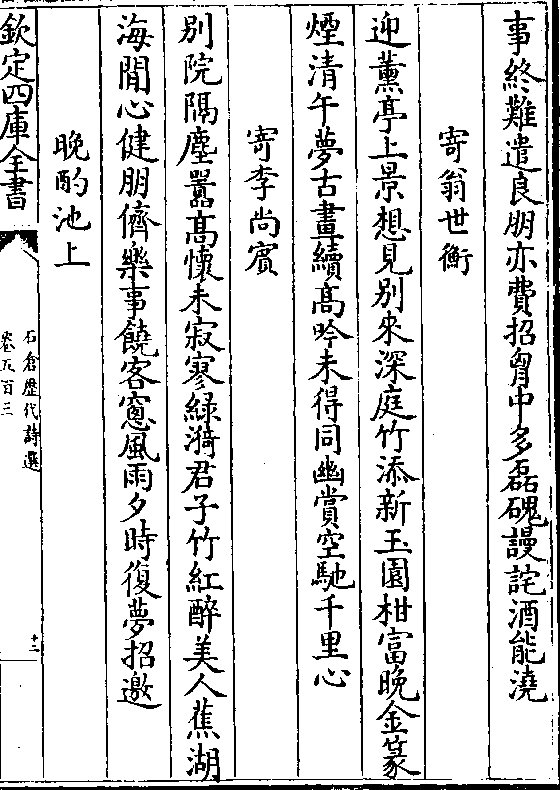 事終難遣良朋亦費招胷中多磊磈謾詫酒能澆
寄翁世衡
迎薰亭上景想見别來深庭竹添新玉園柑富晚金篆
煙清午夢古畫續髙吟未得同幽賞空馳千里心
寄李尚賔
别院隔塵囂髙懐未寂寥緑漪君子竹紅醉美人蕉湖
海閒心健朋儕樂事饒客窻風雨夕時復夢招邀
晚酌池上
欽定四庫全書
石倉歴代詩選
卷五百三
十二